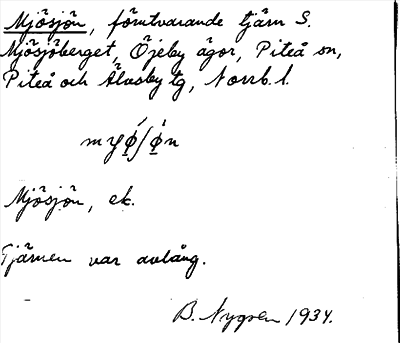 Mjösjön, förutvarande tjärn S.
Mjösjöberget, Öjeby ägor, Piteå sn,
Piteå och Älvsby tg, Norrb. l.
myǿʃøn
Mjösjön, ek.
Tjärnen var avlång.
B. Nygren 1934.